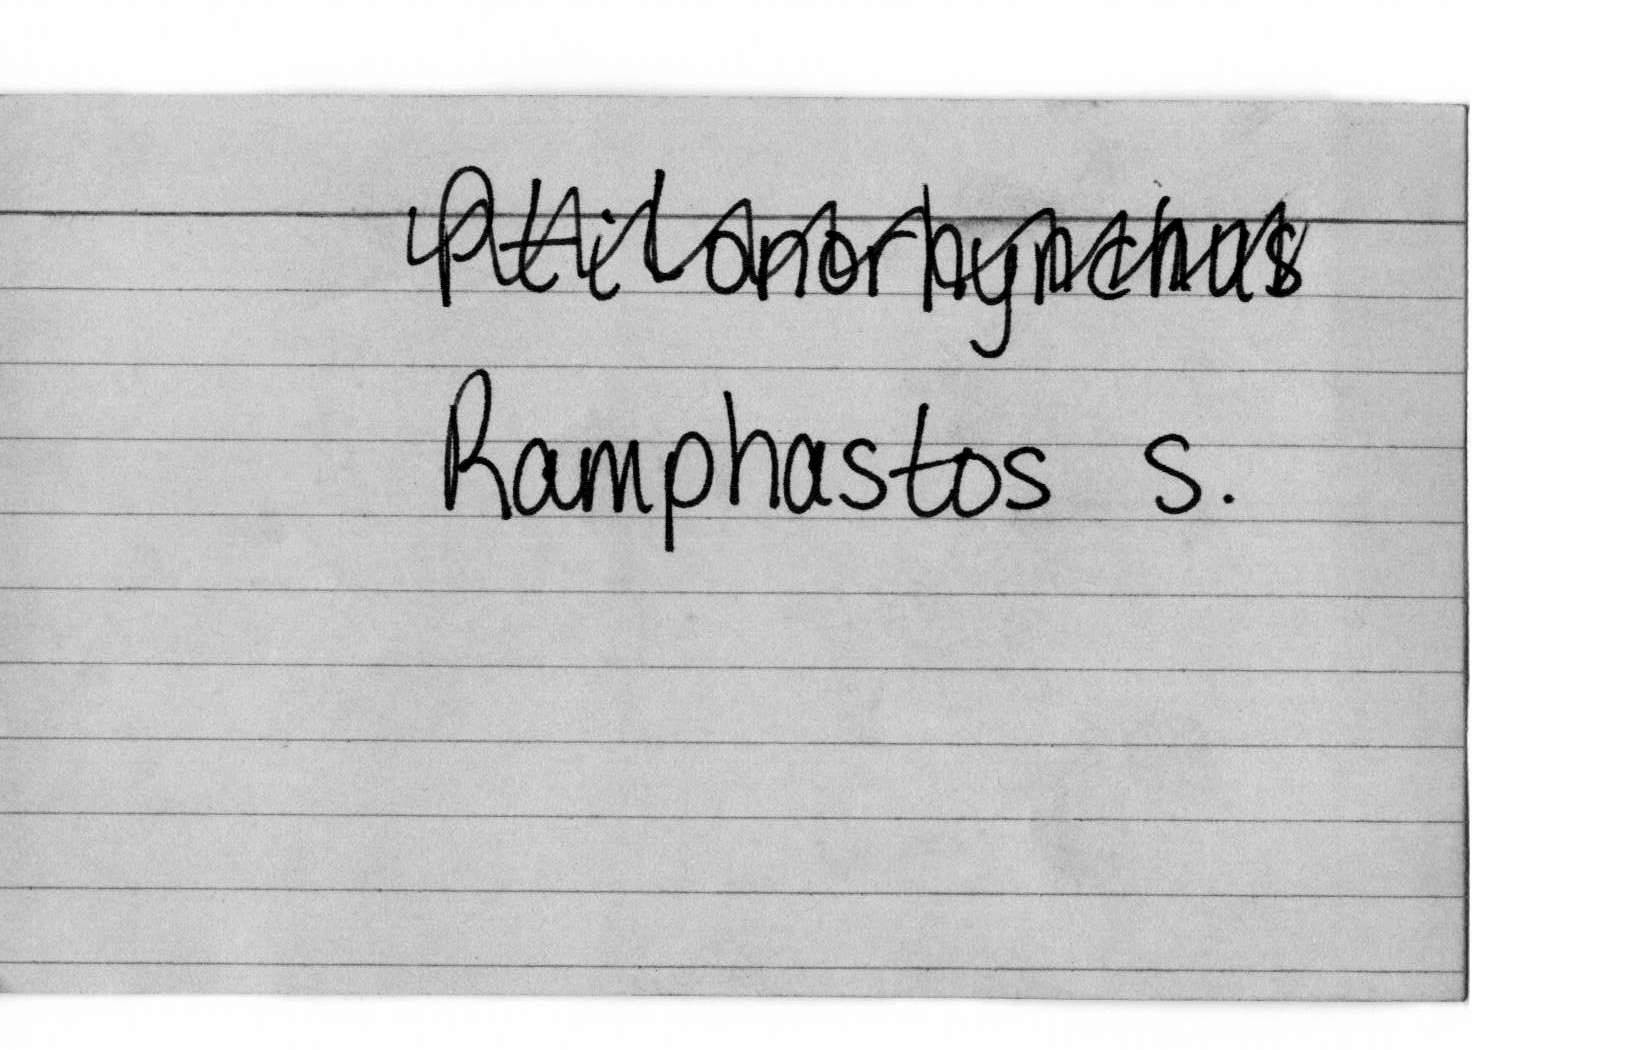 Ptilonorhynchus
Ramphastos s.